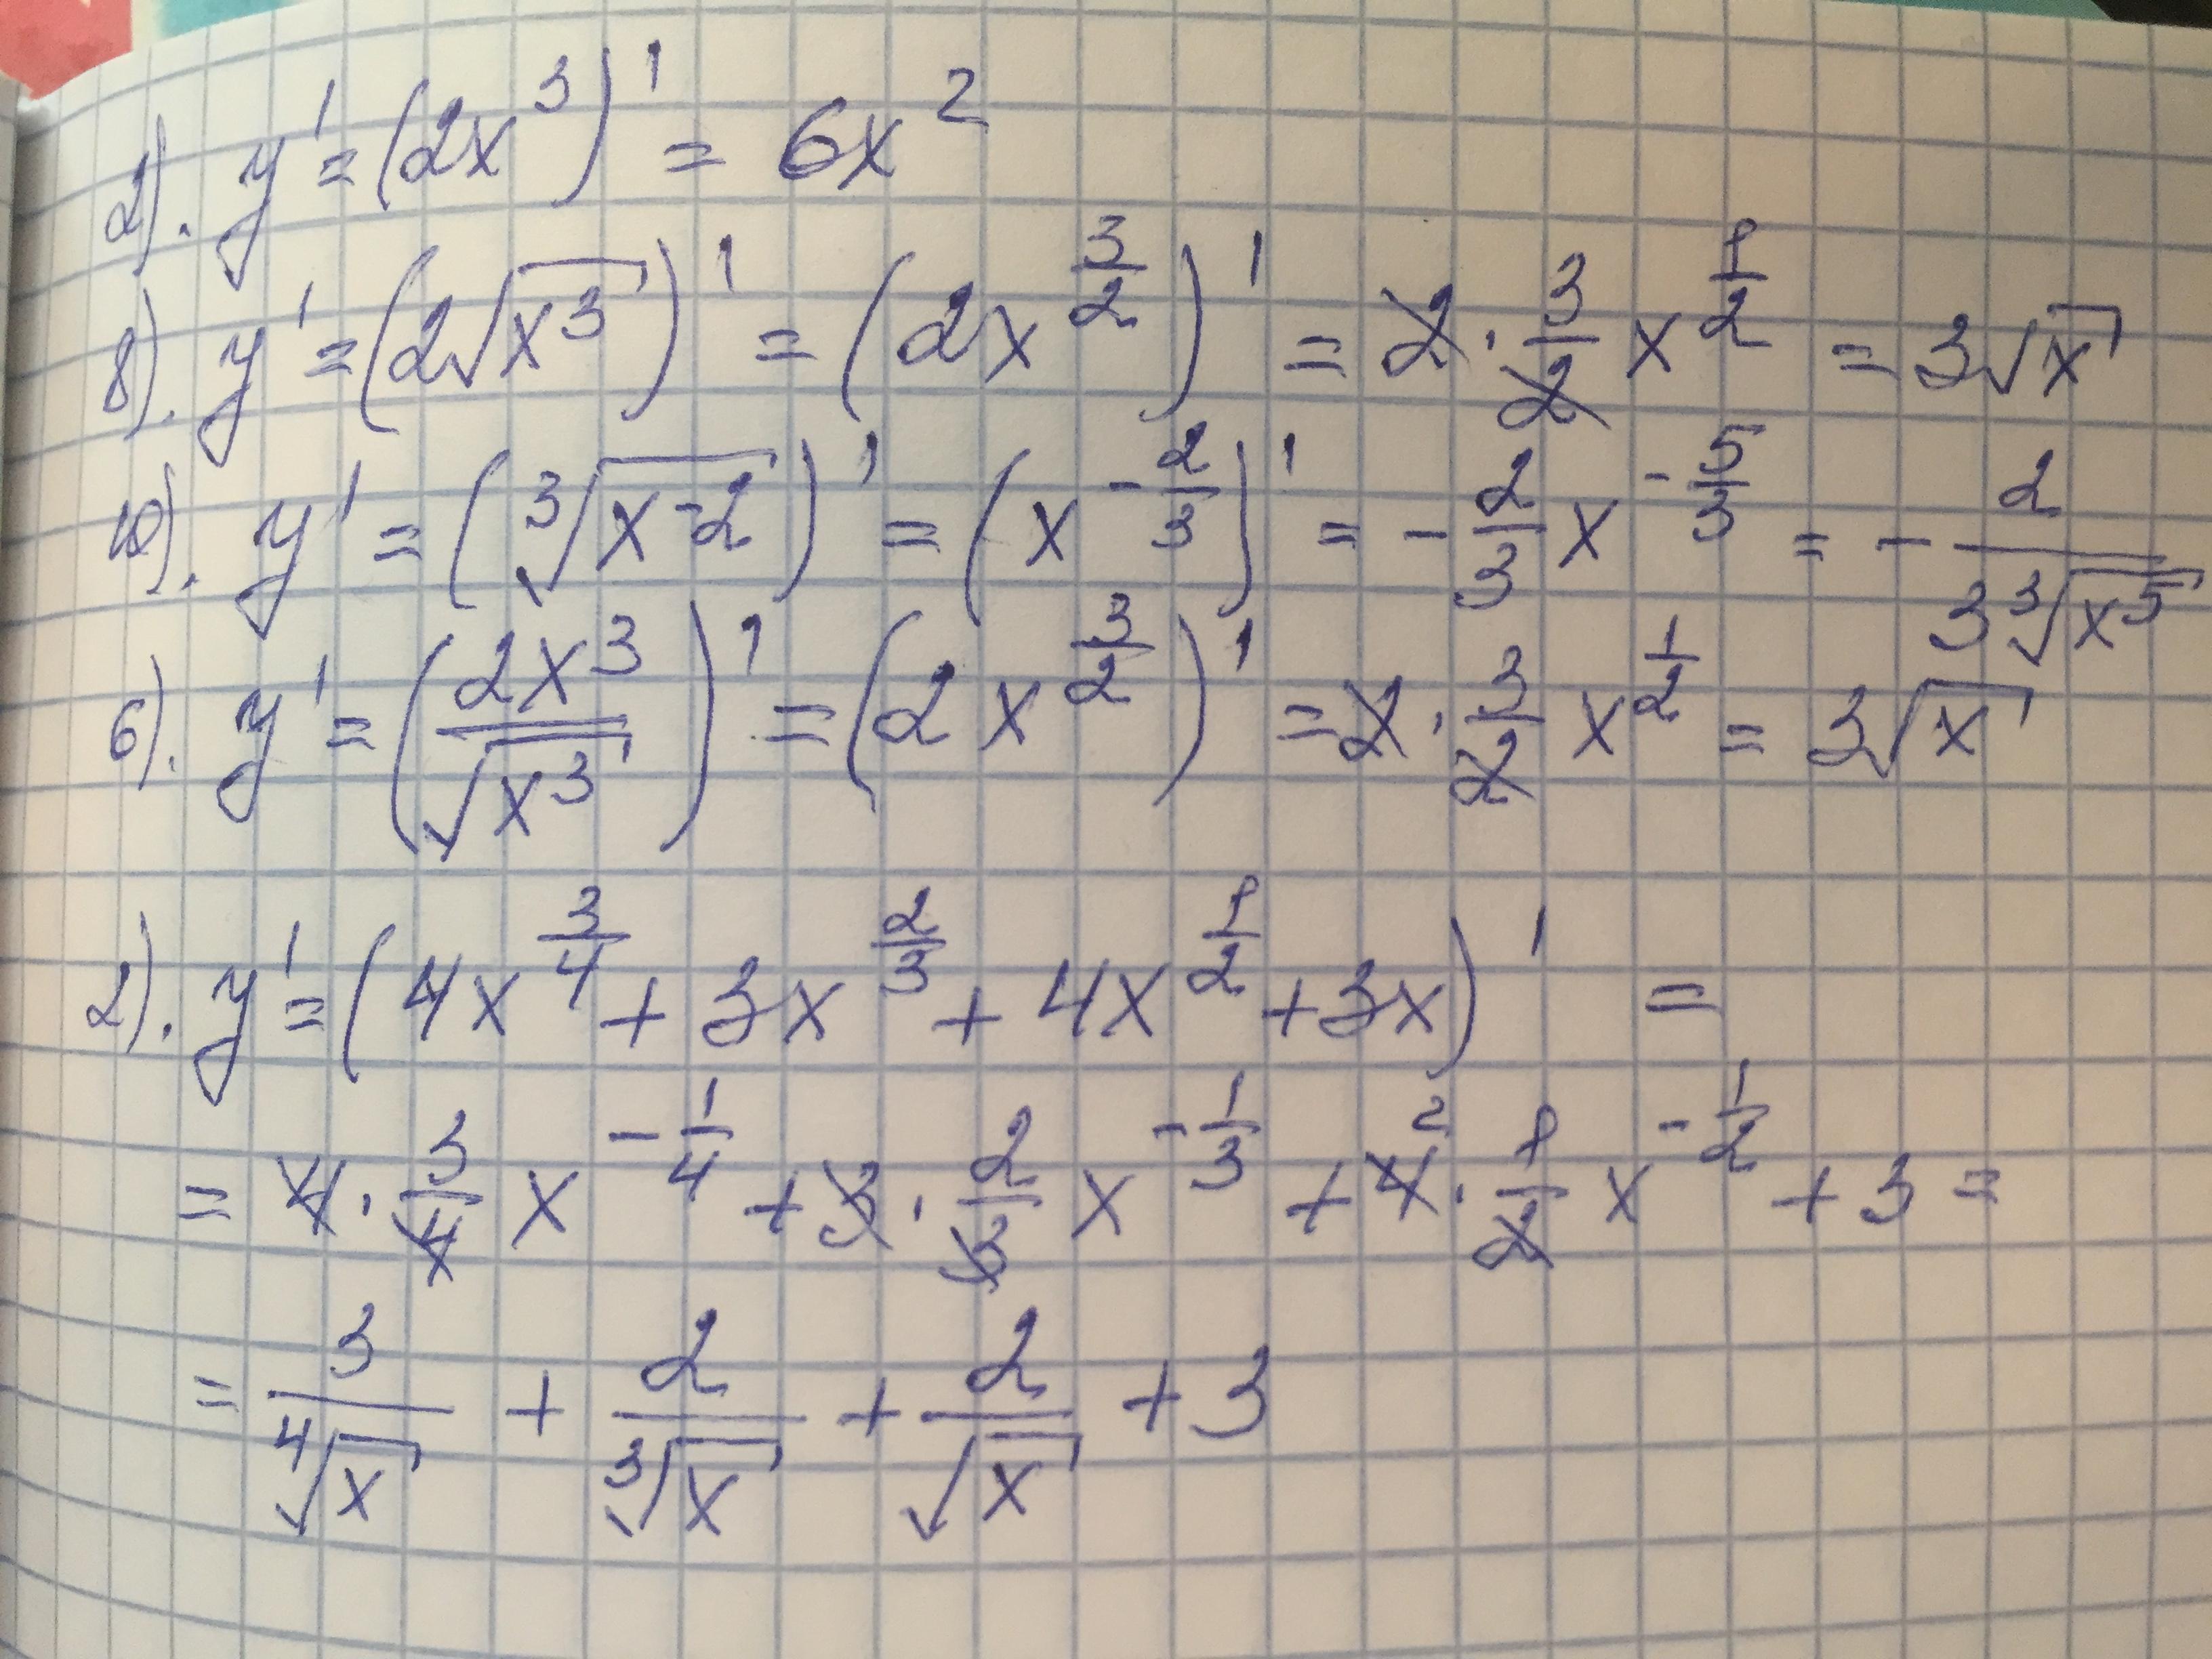 2). y' = (2x³)' = 6x²
8). y' = (2√(x³))' = (2x^(3/2))' = 2 · 3/2 x^(1/2) = 3√x
10). y' = (³√(x⁻²))' = (x^(-2/3))' = -2/3 x^(-5/3) = - 2/(3 ³√(x⁵))
6). y' = (2x³/√(x³))' = (2x^(3/2))' = 2 · 3/2 x^(1/2) = 3√x
2). y' = (4x^(3/4) + 3x^(2/3) + 4x^(1/2) + 3x)' =
= 4 · 3/4 x^(-1/4) + 3 · 2/3 x^(-1/3) + 4² · 1/2 x^(-1/2) + 3 =
= 3/⁴√x + 2/³√x + 2/√x + 3